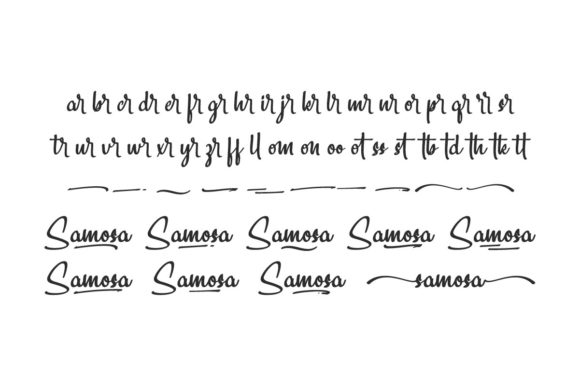 ar br cr dr er fr gr hr ir jr kr lr mr nr or pr qr rr sr
tr ur vr wr xr yr zr ff ll om on oo ot ss st tb td th tk tt
Samosa Samosa Samosa Samosa Samosa
Samosa Samosa Samosa samosa